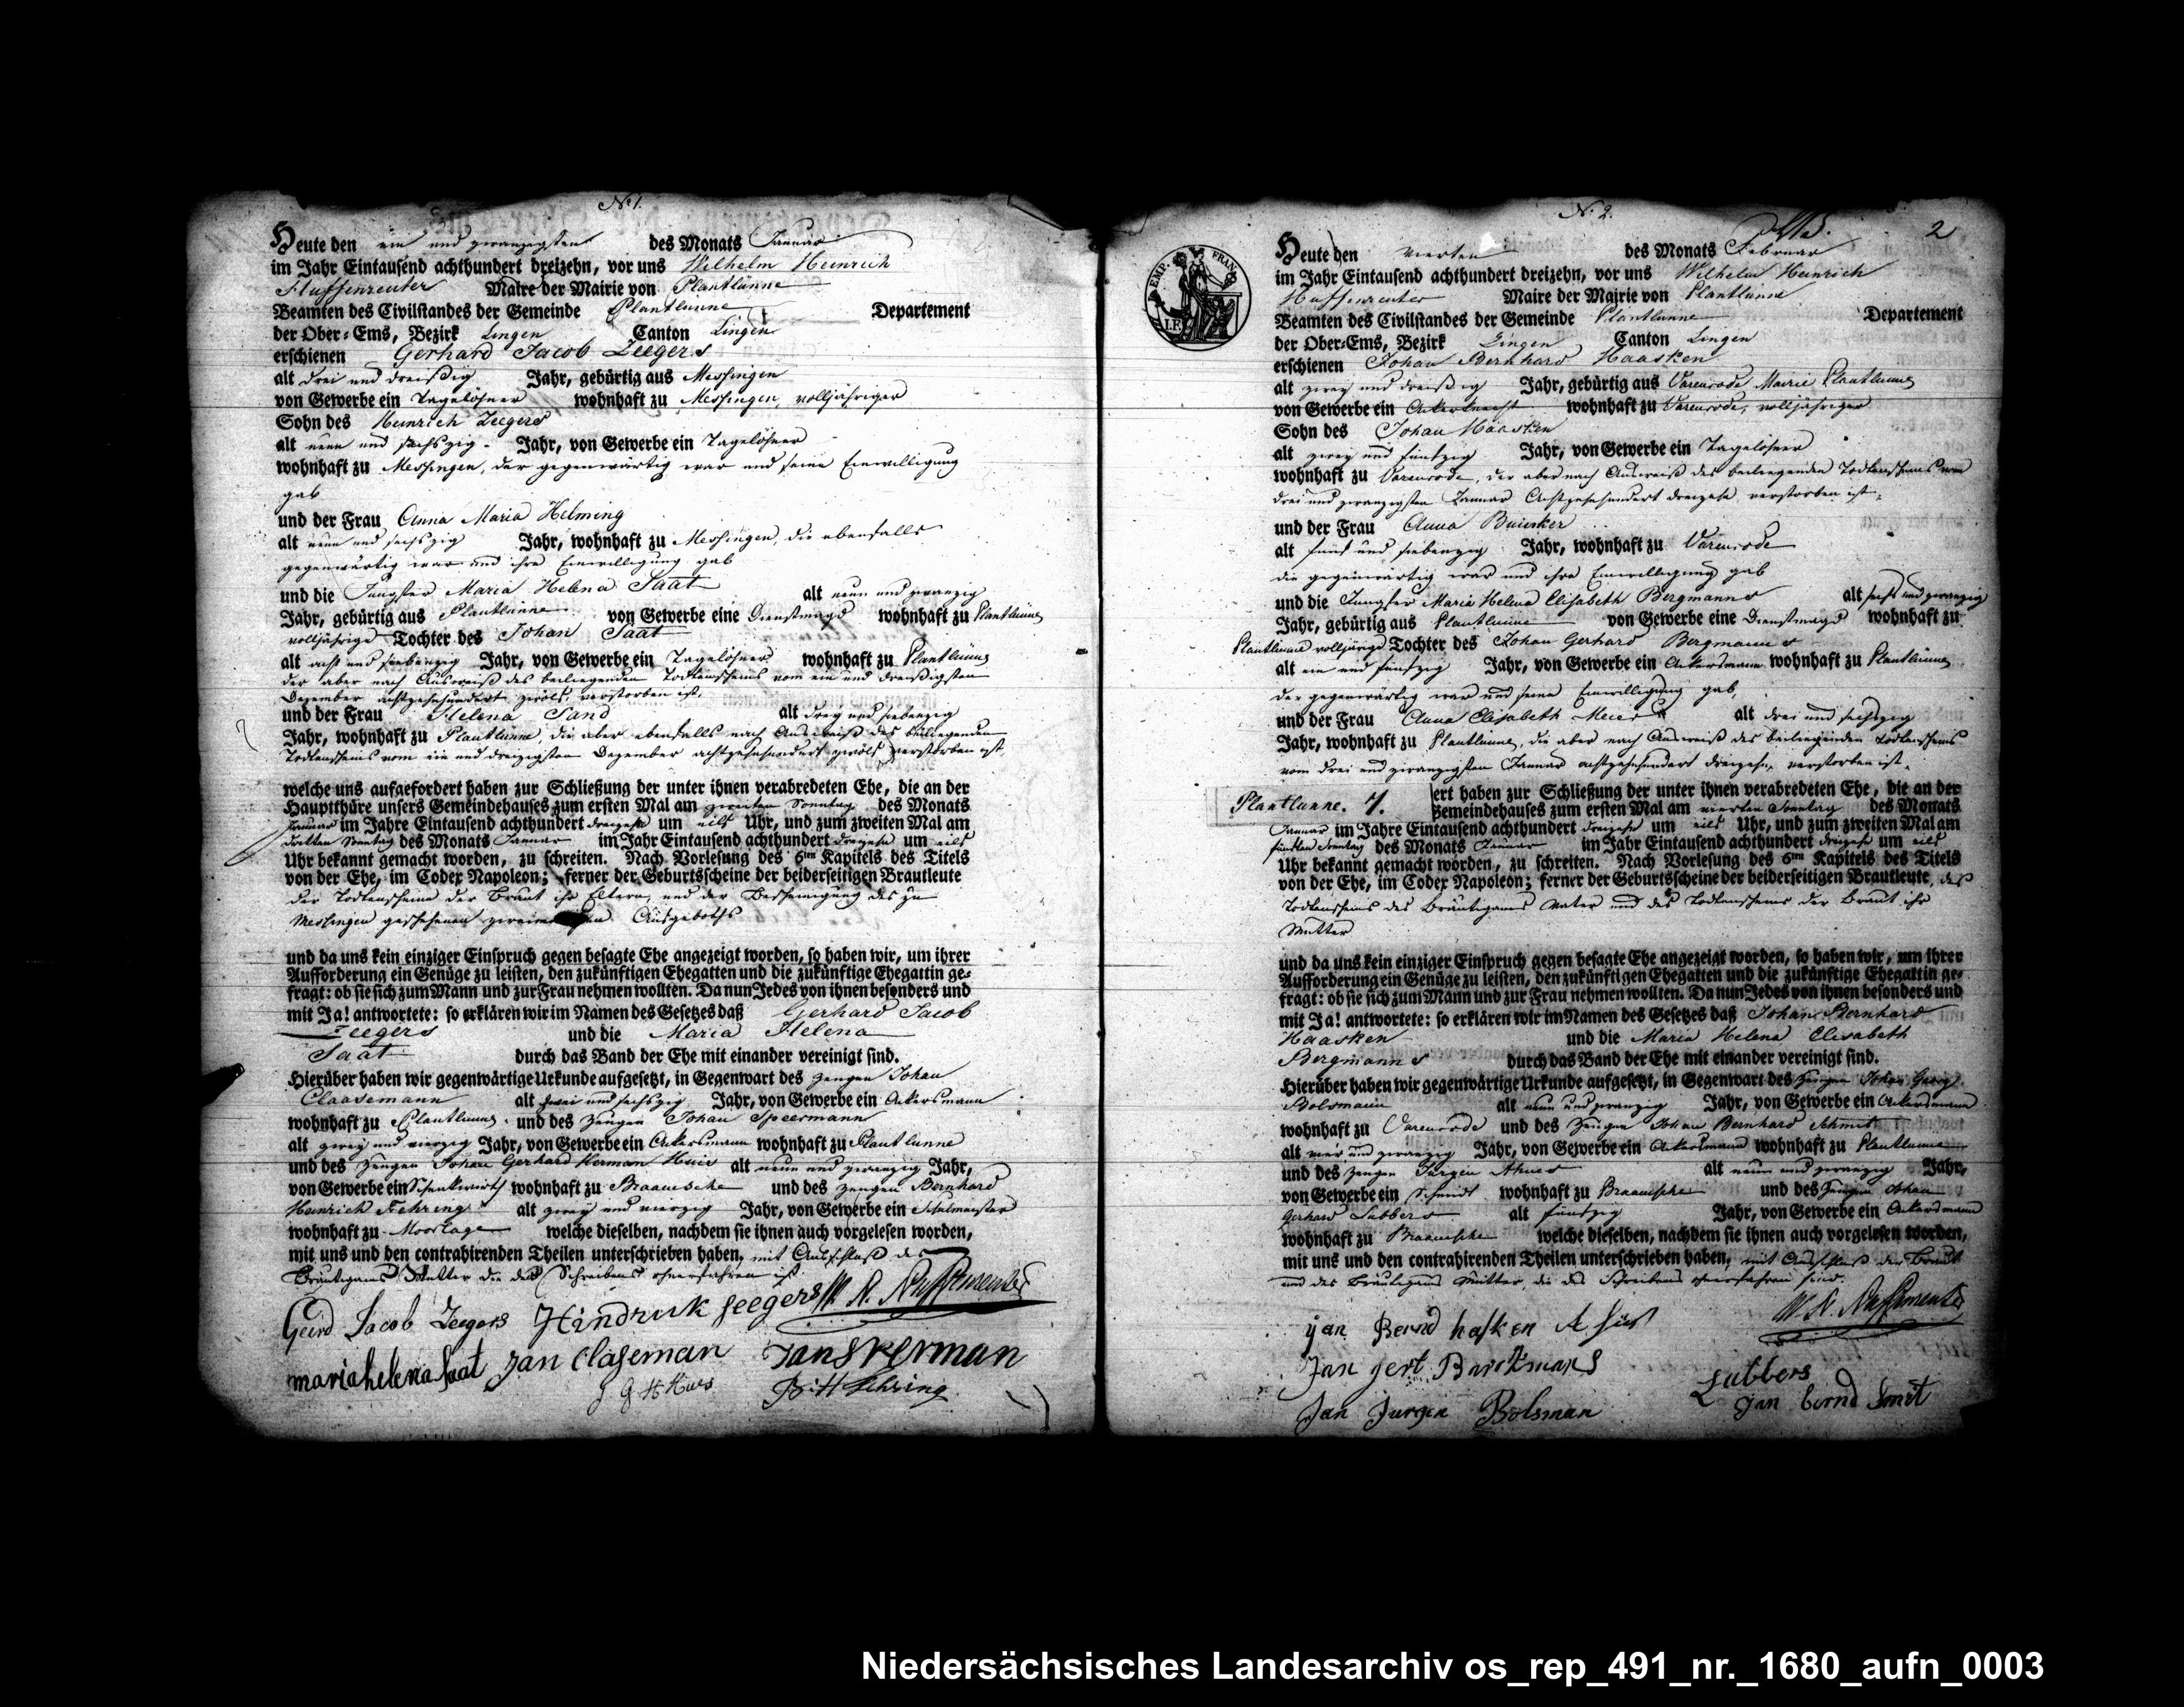 N. 1.
Heute den ein und zwanzigsten des Monats Januar
im Jahr Eintausend achthundert dreizehn, vor uns Wilhelm Heinrich
Nuffenreuter Maire der Mairie von Plantlünne
Beamten des Civilstandes der Gemeinde Plantlünne Departement
der Ober-Ems, Bezirk Lingen Canton Lingen
erschienen Gerhard Jacob Zeegers
alt drei und dreißig Jahr, gebürtig aus Messingen
von Gewerbe ein Tagelöhner wohnhaft zu Messingen, volljähriger
Sohn des Heinrich Zeegers
alt neun und sechszig Jahr, von Gewerbe ein Tagelöhner
wohnhaft zu Messingen, der gegenwärtig war und seine Einwilligung
gab
und der Frau Anna Maria Helming
alt neun und sechszig Jahr, wohnhaft zu Messingen, die ebenfalls
gegenwärtig war und ihre Einwilligung gab
und die Jungfer Maria Helena Saat alt neun und zwanzig
Jahr, gebürtig aus Plantlünne von Gewerbe eine Dienstmagd wohnhaft zu Plantlünne
volljährige Tochter des Johan Saat
alt acht und siebenzig Jahr, von Gewerbe ein Tagelöhner wohnhaft zu Plantlünne
der aber nach Ausweiß des beiliegenden Todtenscheins vom ein und dreißigsten
Dezember achtzehnhundert zwölf, verstorben ist.
und der Frau Helena Sand alt drey und siebenzig
Jahr, wohnhaft zu Plantlünne, die aber ebenfalls nach Ausweiß des beiliegenden
Todtenscheins vom ein und dreizigsten Dezember achtzehnhundert zwölf verstorben ist,
welche uns aufgefordert haben zur Schließung der unter ihnen verabredeten Ehe, die an der
Hauptthüre unsers Gemeindehauses zum ersten Mal am zweiten Sonntag des Monats
Januar im Jahre Eintausend achthundert dreizehn um eilf Uhr, und zum zweiten Mal am
dritten Sonntag des Monats Januar im Jahr Eintausend achthundert dreizehn um eilf
Uhr bekannt gemacht worden, zu schreiten. Nach Vorlesung des 6ten Kapitels des Titels
von der Ehe, im Codex Napoleon; ferner der Geburtsscheine der beiderseitigen Brautleute
der Todtenscheine der Braut ihr Eltern, und der Bescheinigung des zu
Messingen geschehenen Ausgeboths
und da uns kein einziger Einspruch gegen besagte Ehe angezeigt worden, so haben wir, um ihrer
Aufforderung ein Genüge zu leisten, den zukünftigen Ehegatten und die zukünftige Ehegattin ge-
fragt: ob sie sich zum Mann und zur Frau nehmen wollten. Da nun Jedes von ihnen besonders und
mit Ja! antwortete: so erklären wir im Namen des Gesetzes daß Gerhard Jacob
Zeegers und die Maria Helena
Saat durch das Band der Ehe mit einander vereinigt sind.
Hierüber haben wir gegenwärtige Urkunde aufgesetzt, in Gegenwart des Zeugen Johan
Claasemann alt zwei und sechszig Jahr, von Gewerbe ein Ackersmann
wohnhaft zu Plantlünne und des Zeugen Johan Speermann
alt zwey und vierzig Jahr, von Gewerbe ein Ackersmann wohnhaft zu Plantlünne
und des Zeugen Johan Gerhard Herman Huis alt neun und zwanzig Jahr,
von Gewerbe ein Schenkwirth wohnhaft zu Braamsche und des Zeugen Bernhard
Heinrich Fehring alt zwey und vierzig Jahr, von Gewerbe ein Schulmeister
wohnhaft zu Moorlage welche dieselben, nachdem sie ihnen auch vorgelesen worden,
mit uns und den contrahirenden Theilen unterschrieben haben, mit Ausschluß der
Bräutigams Mutter die des Schreibens ohnerfahren ist
Gerd Jacob Zeegers Hindrick Seegers W. H. Nuffenreuter
maria helena Saat Jan Claseman Jan Sperman
J G H Huis B. H. Fehring
N. 2.
2
EMP. FRAN
Heute den vierten des Monats Februar
im Jahr Eintausend achthundert dreizehn, vor uns Wilhelm Heinrich
Nuffenreuter Maire der Mairie von Plantlünne
Beamten des Civilstandes der Gemeinde Plantlünne Departement
der Ober-Ems, Bezirk Lingen Canton Lingen
erschienen Johan Bernhard Haasken
alt zwey und dreißig Jahr, gebürtig aus Varenrode Mairie Plantlünne
von Gewerbe ein Ackerknecht wohnhaft zu Varenrode, volljähriger
Sohn des Johan Haasken
alt zwey und fünfzig Jahr, von Gewerbe ein Tagelöhner
wohnhaft zu Varenrode, der aber nach Ausweiß des beiliegenden Todtenscheins vom
drei und zwanzigsten Januar Achtzehnhundert dreizehn verstorben ist,
und der Frau Anna
alt fünf und siebenzig Jahr, wohnhaft zu Varenrode
die gegenwärtig war und ihre Einwilligung gab
und die Jungfer Maria Helena Elisabeth Bergmanns alt sechs und zwanzig
Jahr, gebürtig aus Plantlünne von Gewerbe eine Dienstmagd wohnhaft zu
Plantlünne volljärige Tochter des Johan Gerhard Bergmanns
alt ein und fünfzig Jahr, von Gewerbe ein Ackersmann wohnhaft zu Plantlünne
der gegenwärtig war und seine Einwilligung gab,
und der Frau Anna Elisabeth Meiers alt drei und sechszig
Jahr, wohnhaft zu Plantlünne, die aber nach Ausweiß des beiliegenden Todtenscheins
vom drei und zwanzigsten Januar achtzehnhundert dreizehn, verstorben ist.
Plantlünne. 7. ert haben zur Schließung der unter ihnen verabredeten Ehe, die an der
Gemeindehauses zum ersten Mal am vierten Sonntag des Monats
Januar im Jahre Eintausend achthundert dreizehn um eilf Uhr, und zum zweiten Mal am
fünften Sonntag des Monats Januar im Jahr Eintausend achthundert dreizehn um eilf
Uhr bekannt gemacht worden, zu schreiten. Nach Vorlesung des 6ten Kapitels des Titels
von der Ehe, im Codex Napoleon; ferner der Geburtsscheine der beiderseitigen Brautleute, des
Todtenscheins des Bräutigams Vater und des Todtenscheins der Braut ihr
Mutter
und da uns kein einziger Einspruch gegen besagte Ehe angezeigt worden, so haben wir, um ihrer
Aufforderung ein Genüge zu leisten, den zukünftigen Ehegatten und die zukünftige Ehegattin ge-
fragt: ob sie sich zum Mann und zur Frau nehmen wollten. Da nun Jedes von ihnen besonders und
mit Ja! antwortete: so erklären wir im Namen des Gesetzes daß Johan Bernhard
Haasken und die Maria Helena Elisabeth
Bergmanns durch das Band der Ehe mit einander vereinigt sind.
Hierüber haben wir gegenwärtige Urkunde aufgesetzt, in Gegenwart des Zeugen Johan Georg
Bolsmann alt neun und zwanzig Jahr, von Gewerbe ein Ackersmann
wohnhaft zu Varenrode und des Zeugen Johan Bernhard Schmit
alt vier und zwanzig Jahr, von Gewerbe ein Ackersmann wohnhaft zu Plantlünne
und des Zeugen Jürgen alt neun und zwanzig Jahr,
von Gewerbe ein Schmidt wohnhaft zu Braamsche und des Zeugen Johan
Gerhard Lubbers alt fünfzig Jahr, von Gewerbe ein Ackersmann
wohnhaft zu Braamsche welche dieselben, nachdem sie ihnen auch vorgelesen worden,
mit uns und den contrahirenden Theilen unterschrieben haben, mit Ausschluß der Braut
und des Bräutigams Mutter, die des Schreibens ohnerfahren sind.
W. H. Nuffenreuter
Jan Bernd hasken
Jan gert
Lubbers
Jan Jurgen Bolsman Jan bernd Smit
Niedersächsisches Landesarchiv os_rep_491_nr._1680_aufn_0003